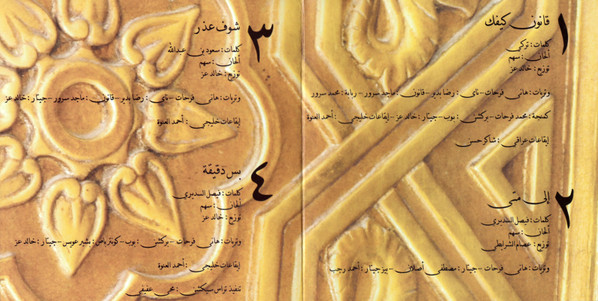 ١
قانون كيفك
كلمات : تركي
ألحان : سهم
توزيع : خالد عز
وتريات : هاني فرحات - ناي : رضا بدير - قانون : ماجد سرور - ربابة : محمد سرور
كمنجة : محمد فرحات - بركشن : بوب - جيتار : خالد عز - إيقاعات خليجي : أحمد العنوة
إيقاعات عراقي : شاكر حسن
٢
إلى متى
كلمات : فيصل السديري
ألحان : سهم
توزيع : عصام الشرايطي
وتريات : هاني فرحات - جيتار : مصطفى أصلان - بيز جيتار : أحمد رجب
٣
شوف عذر
كلمات : سعود بن عبدالله
ألحان : سهم
توزيع : خالد عز
وتريات : هاني فرحات - ناي : رضا بدير - قانون : ماجد سرور - جيتار : خالد عز
إيقاعات خليجي : أحمد العنوة
٤
بس دقيقة
كلمات : فيصل السديري
ألحان : سهم
توزيع : خالد عز
وتريات : هاني فرحات - بركشن : بوب - كونترباص : بشير عويس - جيتار : خالد عز
إيقاعات خليجي : أحمد العنوة
تنفيذ تراس سيكشن : محي عفيفي